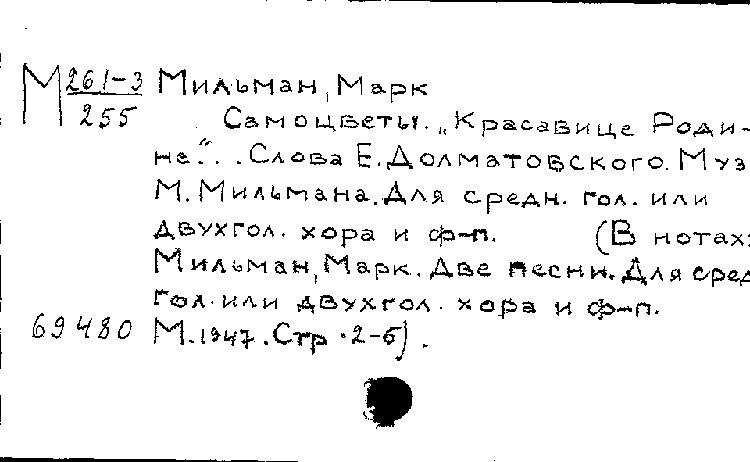 М 261-3 Мильман, Марк
255 Самоцветы. „Красавице Роди-
не"... Слова Е. Долматовского. Муз
М. Мильмана. Для средн. гол. или
двухгол. хора и ф-п. (В нотах:
Мильман, Марк. Две песни. Для сред
гол. или двухгол. хора и ф-п.
69480 М. 1947. Стр. 2-5).